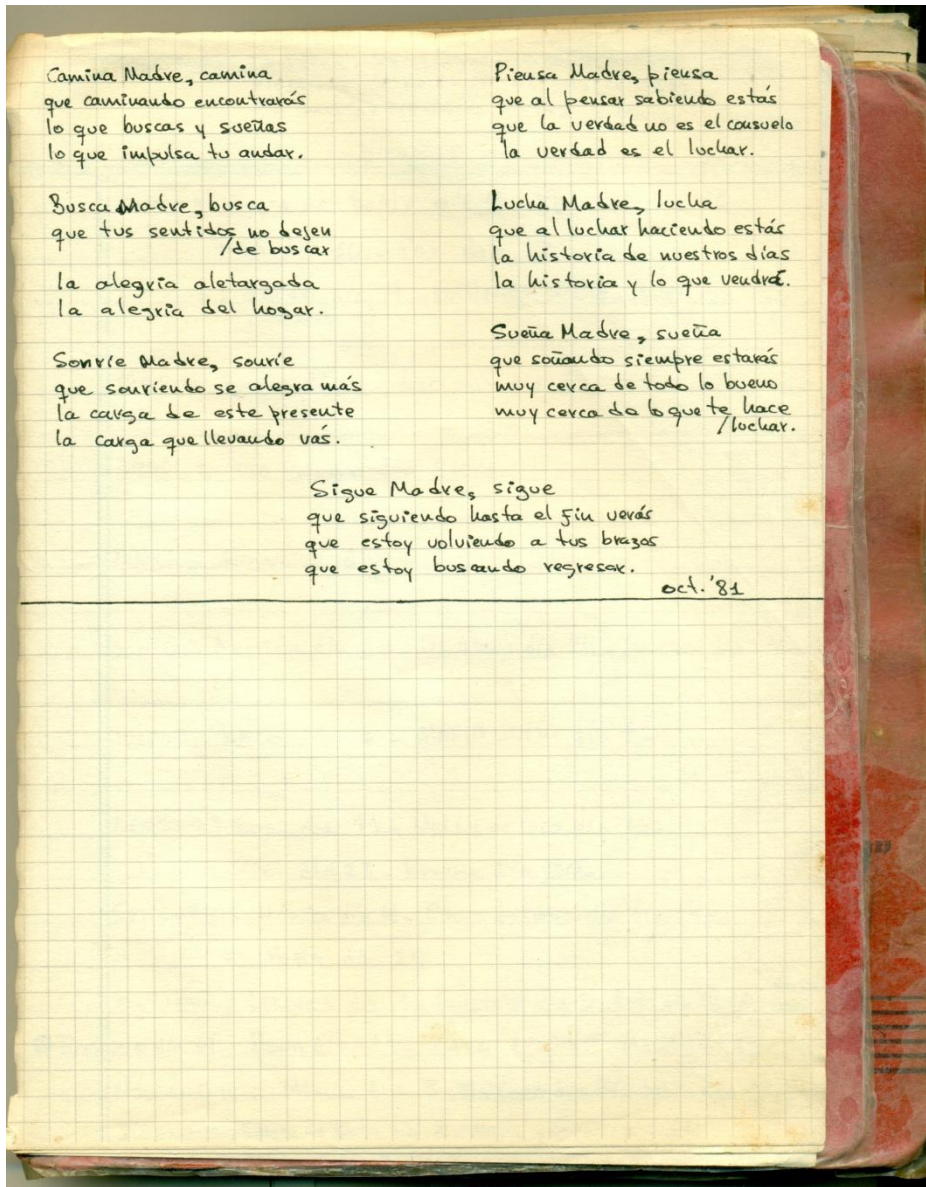 Camina Madre, camina
que caminando encontrarás
lo que buscas y sueñas
lo que impulsa tu andar.
Busca Madre, busca
que tus sentidos no dejen
/de buscar
la alegria aletargada
la alegria del hogar.
Sonríe Madre, sonríe
que sonriendo se alegra más
la carga de este presente
la carga que llevando vás.
Piensa Madre, piensa
que al pensar sabiendo estás
que la verdad no es el consuelo
la verdad es el luchar.
Lucha Madre, lucha
que al luchar haciendo estás
la historia de nuestros días
la historia y lo que vendrá.
Sueña Madre, sueña
que soñando siempre estarás
muy cerca de todo lo bueno
muy cerca de lo que te hace
/luchar.
Sigue Madre, sigue
que siguiendo hasta el fin verás
que estoy volviendo a tus brazos
que estoy buscando regresar.
oct. '81